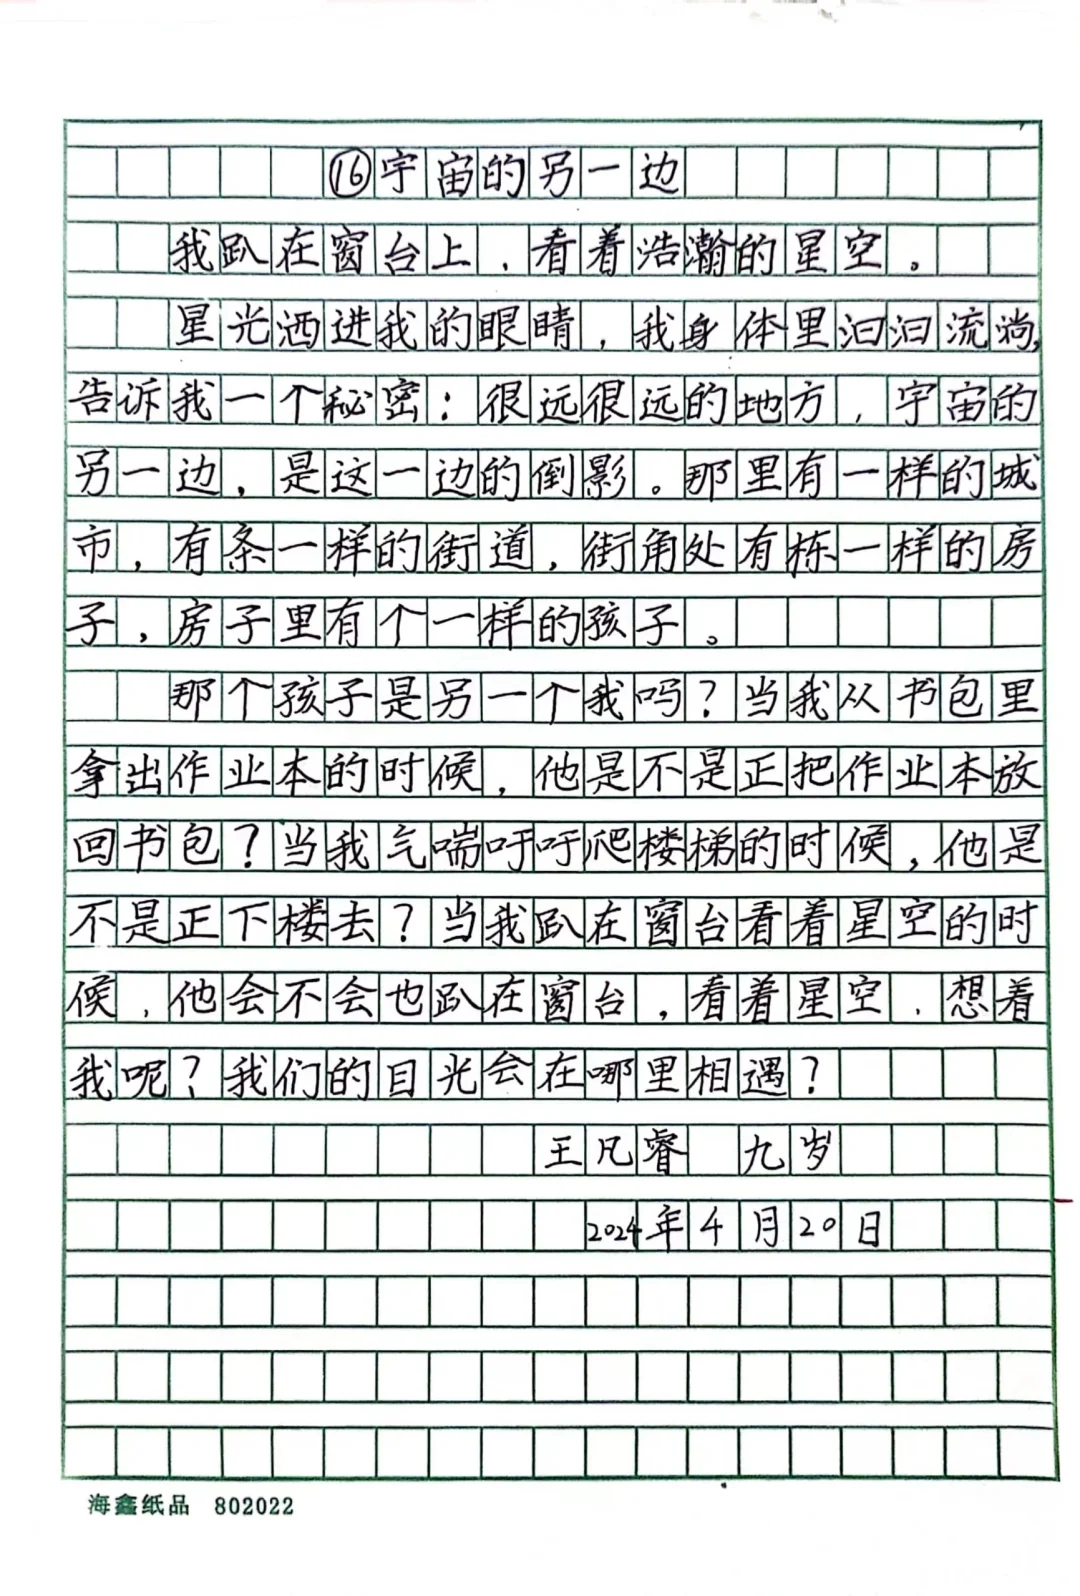 ⑯宇宙的另一边
我趴在窗台上，看着浩瀚的星空。
星光洒进我的眼睛，我身体里汩汩流淌，
告诉我一个秘密：很远很远的地方，宇宙的
另一边，是这一边的倒影。那里有一样的城
市，有条一样的街道，街角处有栋一样的房
子，房子里有个一样的孩子。
那个孩子是另一个我吗？当我从书包里
拿出作业本的时候，他是不是正把作业本放
回书包？当我气喘吁吁爬楼梯的时候，他是
不是正下楼去？当我趴在窗台看着星空的时
候，他会不会也趴在窗台，看着星空，想着
我呢？我们的目光会在哪里相遇？
王凡睿 九岁
2024年4月20日
海鑫纸品 802022